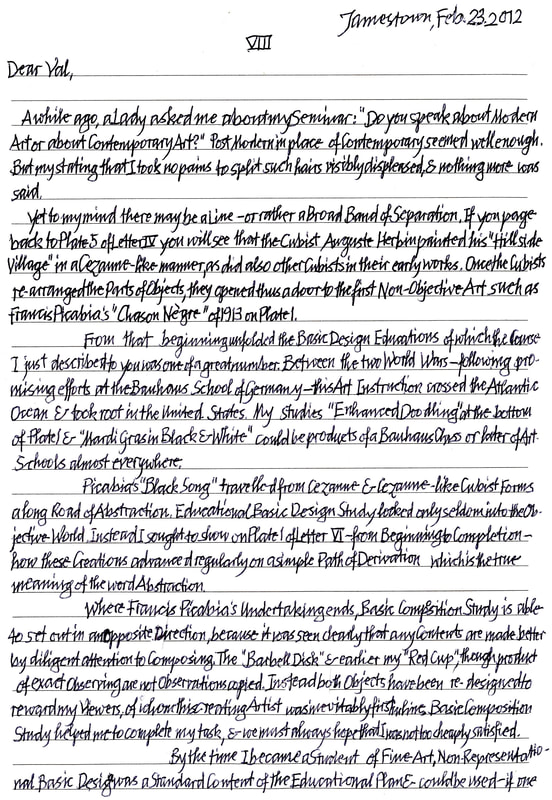 Jamestown, Feb. 23. 2012
VIII
Dear Val,
Awhile ago, a Lady asked me about my Seminar: "Do you speak about Modern
Art or about Contemporary Art?" Post Modern in place of Contemporary seemed well enough.
But my stating that I took no pains to split such hairs visibly displeased, & nothing more was
said.
Yet to my mind there may be a Line – or rather a Broad Band of Separation. If you page
back to Plate 5 of Letter IV you will see that the Cubist, Auguste Herbin painted his "Hillside
Village" in a Cezanne-like manner, as did also other Cubists in their early works. Once the Cubists
re-arranged the Parts of Objects, they opened thus a door to the first Non-Objective Art such as
Francis Picabia's "Chason Nègre" of 1913 on Plate 1.
From that beginning unfolded the Basic Design Educations of which the Course
I just described to you was one of a great number. Between the two World Wars – following pro-
mising efforts at the Bauhaus School of Germany – this Art Instruction crossed the Atlantic
Ocean & took root in the United States. My studies "Enhanced Doodling" at the bottom
of Plate 1 & "Mardi Gras in Black & White" could be products of a Bauhaus Class or later of Art
Schools almost everywhere.
Picabia's "Black Song" travelled from Cezanne & Cezanne-like Cubist Forms
along Road of Abstraction. Educational Basic Design Study looked only seldom into the Ob-
jective World. Instead I sought to show on Plate 1 of Letter VI – from Beginning to Completion –
how these Creations advanced regularly on a simple Path of Derivation which is the true
meaning of the word Abstraction.
Where Francis Picabia's Undertaking ends, Basic Composition Study is able
to set out in an opposite Direction, because it was seen clearly that any Contents are made better
by diligent attention to Composing. The "Barbell Disk" & earlier my "Red Cup", though product
of exact Observing are not Observations copied. Instead both Objects have been re-designed to
reward my Viewers, of whom this creating Artist was inevitably first in line. Basic Composition
Study helped me to complete my task, & we must always hope that I was not too cheaply satisfied.
By the time I became a Student of Fine Art, Non-Representatio-
nal Basic Design was a Standard Content of the Educational Plan & could be used – if one